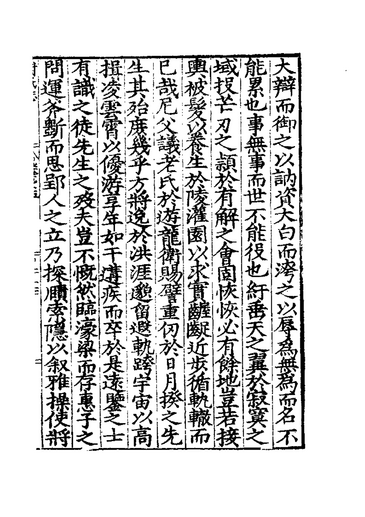 大辯而御之以訥資大白而濟之以辱為無為而名不
能累也事無事而世不能役也紆垂天之翼於寂寞之
域投芒刃之頴於有解之會固恢恢必有餘地豈若接
輿被髮以養生於陵灌園以求實齷齪近步循軌轍而
已哉尼父議老氏於游龍衛賜譬重仞於日月揆之先
生其殆庶幾乎方將逸於洪涯邈留遐軌跨宇宙以高
揖凌雲霄以優游享年如干遘疾而卒於是遠鑒之士
有識之徒先生之殁夫豈不慨然臨濠梁而存惠子之
問運斧斲而思郢人之立乃探賾索隱以叙雅操使將